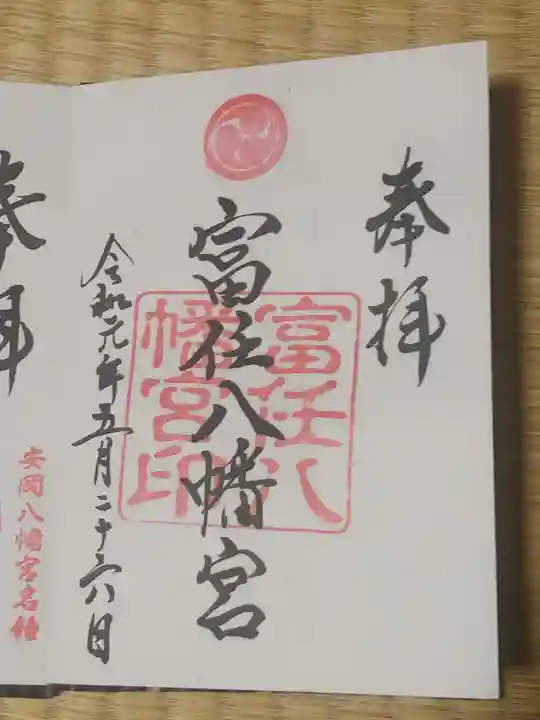 奉拝
富任八幡宮
富任八
幡宮印
令和元年五月二十六日
奉拝
安岡八幡宮名鐘